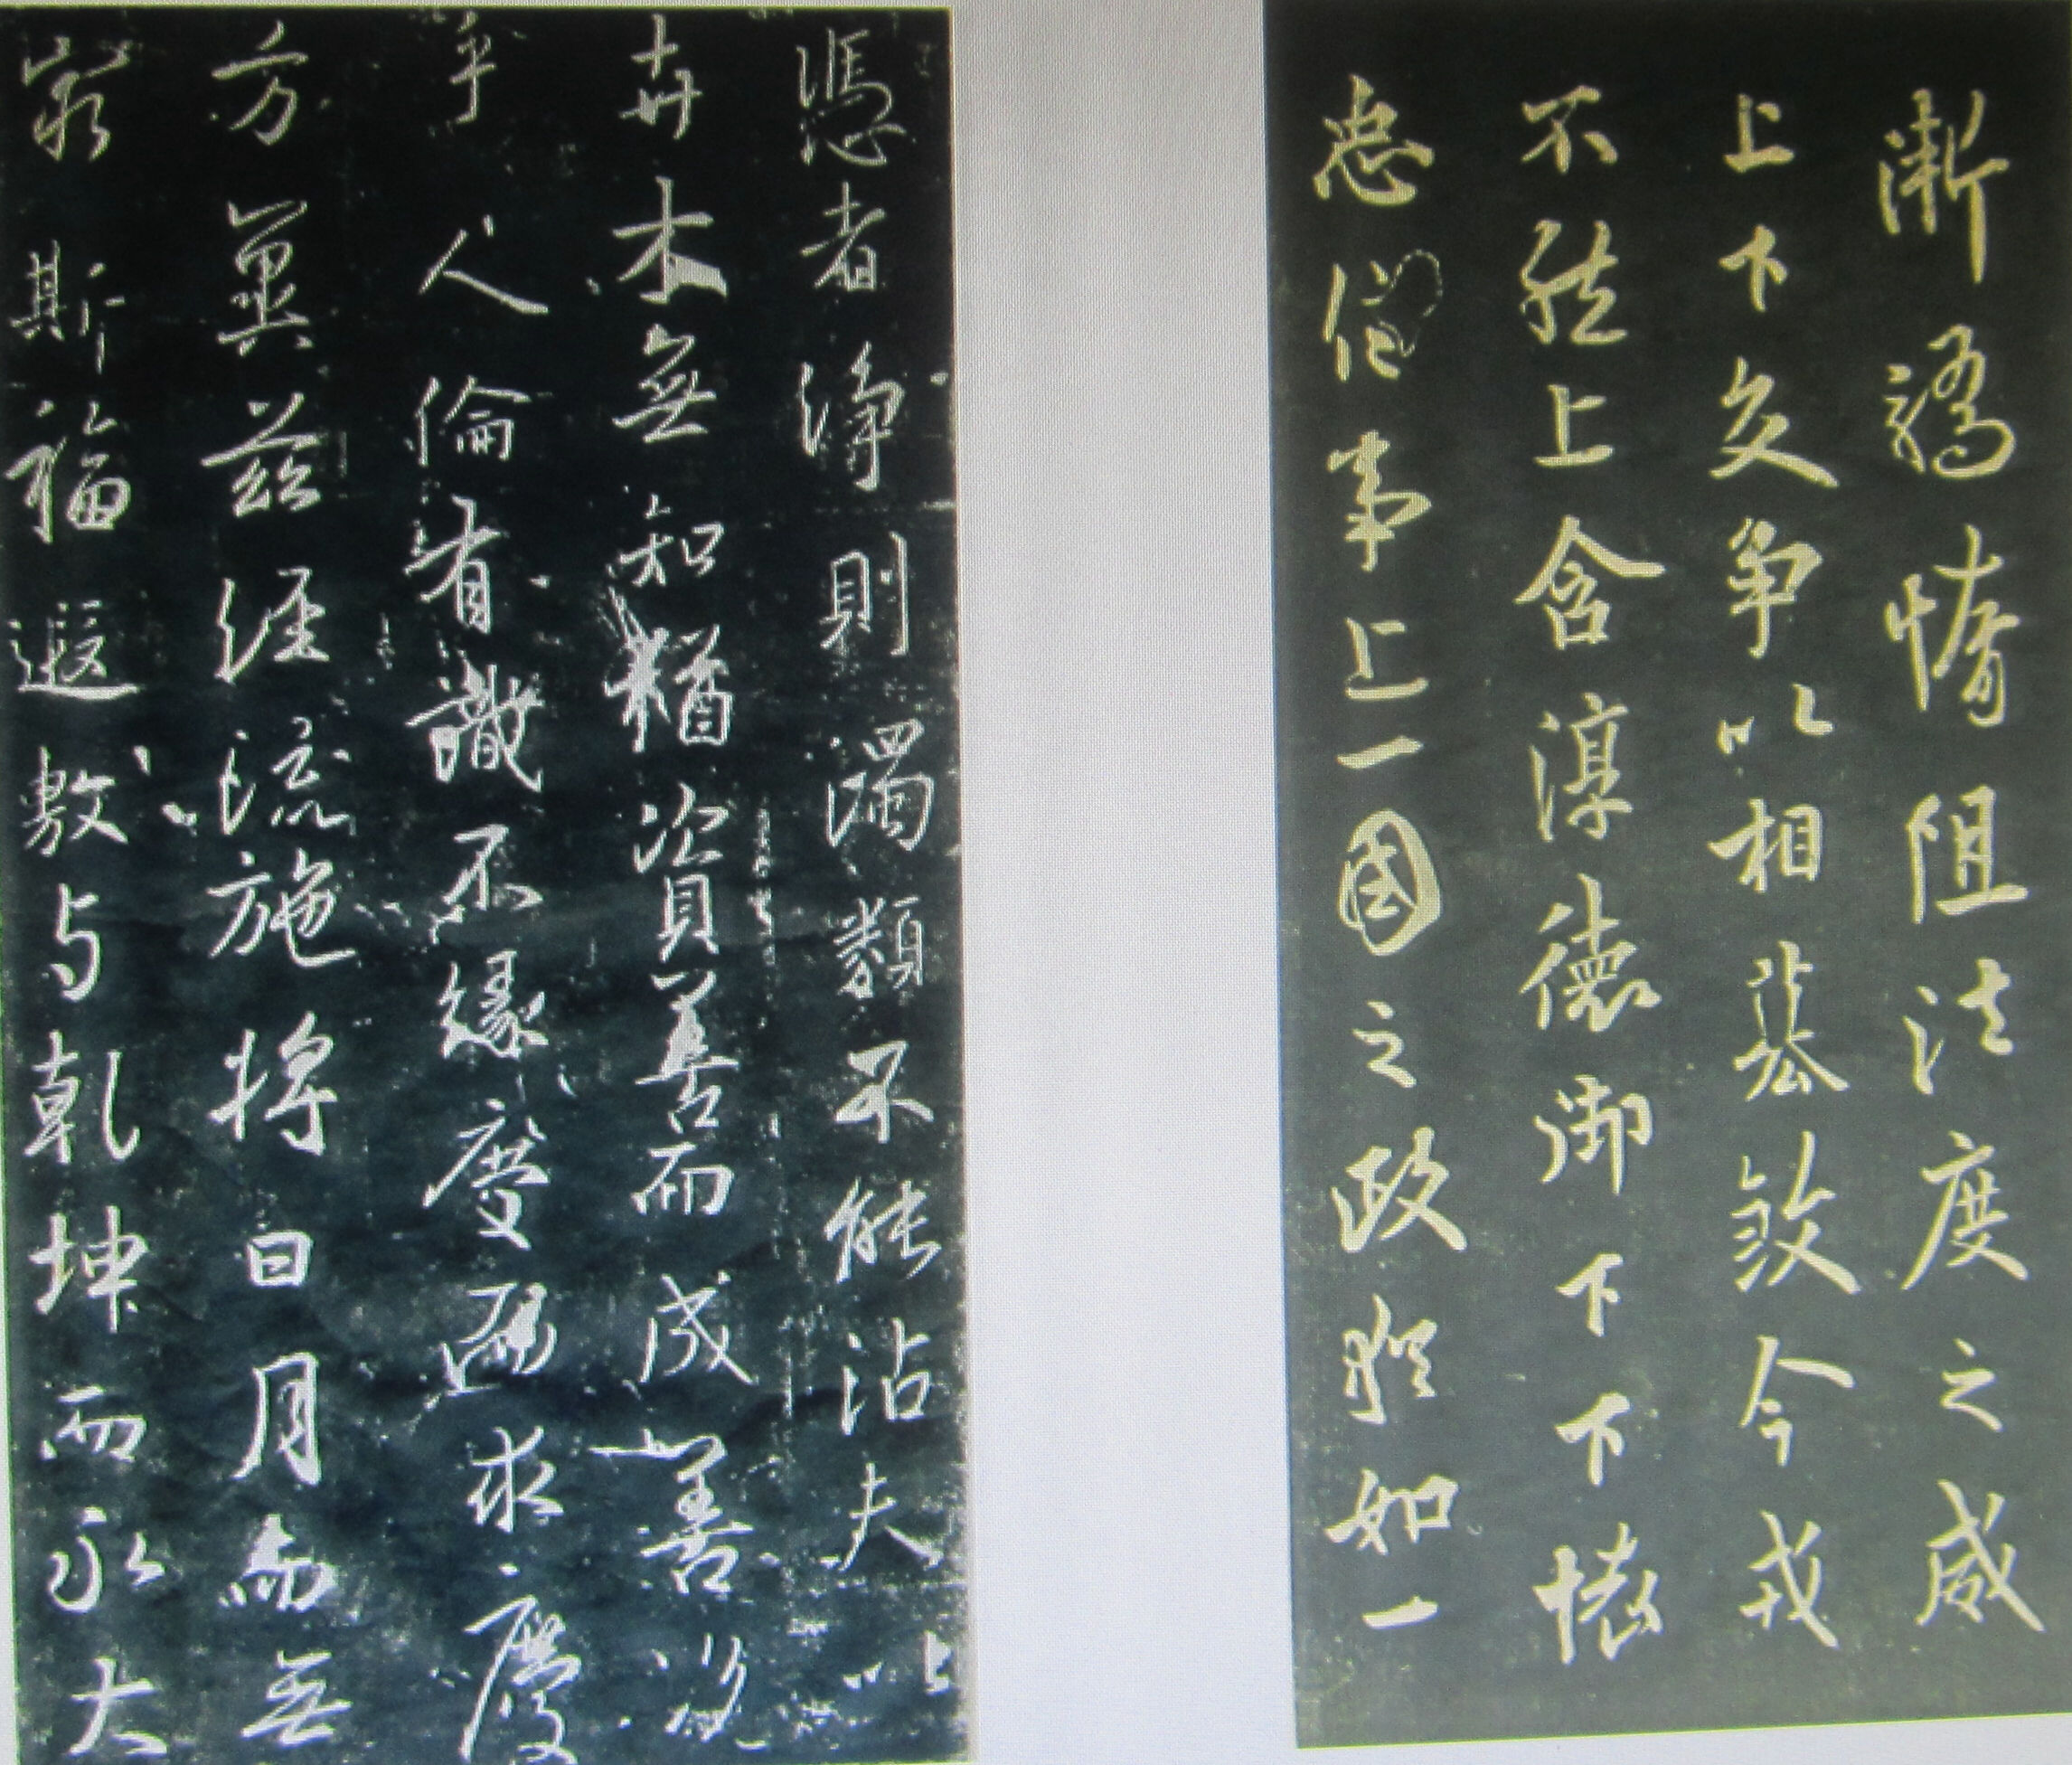 漸驕惰阻法度之威
上下交爭以相篡弒今戎
不然上含淳德御下下懷
忠信事上一國之政猶如一
憑者淨則濁類不能沾夫以
卉木無知猶資善而成善況
乎人倫有識不緣慶而求慶
方冀茲經流施將日月而無
窮斯福遐敷与乾坤而永大